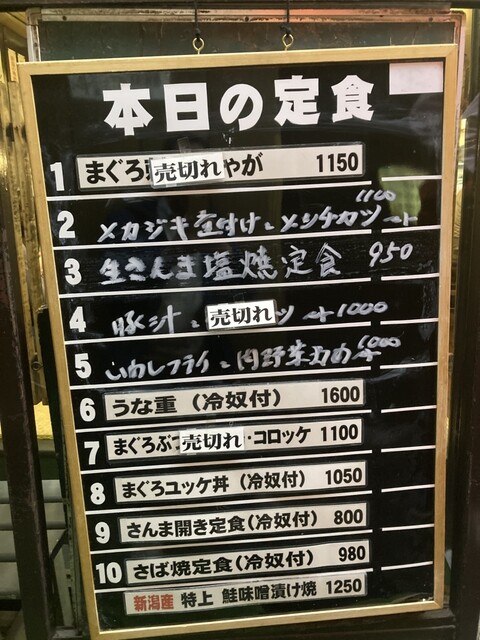 本日の定食
1 まぐろ 売切れ やが 1150
2 メカジキ煮付けとメンチカツ 1100
3 生さんま塩焼定食 950
4 豚汁と 売切れ ツ 1000
5 いわしフライと肉野菜炒め 1000
6 うな重(冷奴付) 1600
7 まぐろぶつ 売切れ ・コロッケ 1100
8 まぐろユッケ丼(冷奴付) 1050
9 さんま開き定食(冷奴付) 800
10 さば焼定食(冷奴付) 980
新潟産 特上 鮭味噌漬け焼 1250